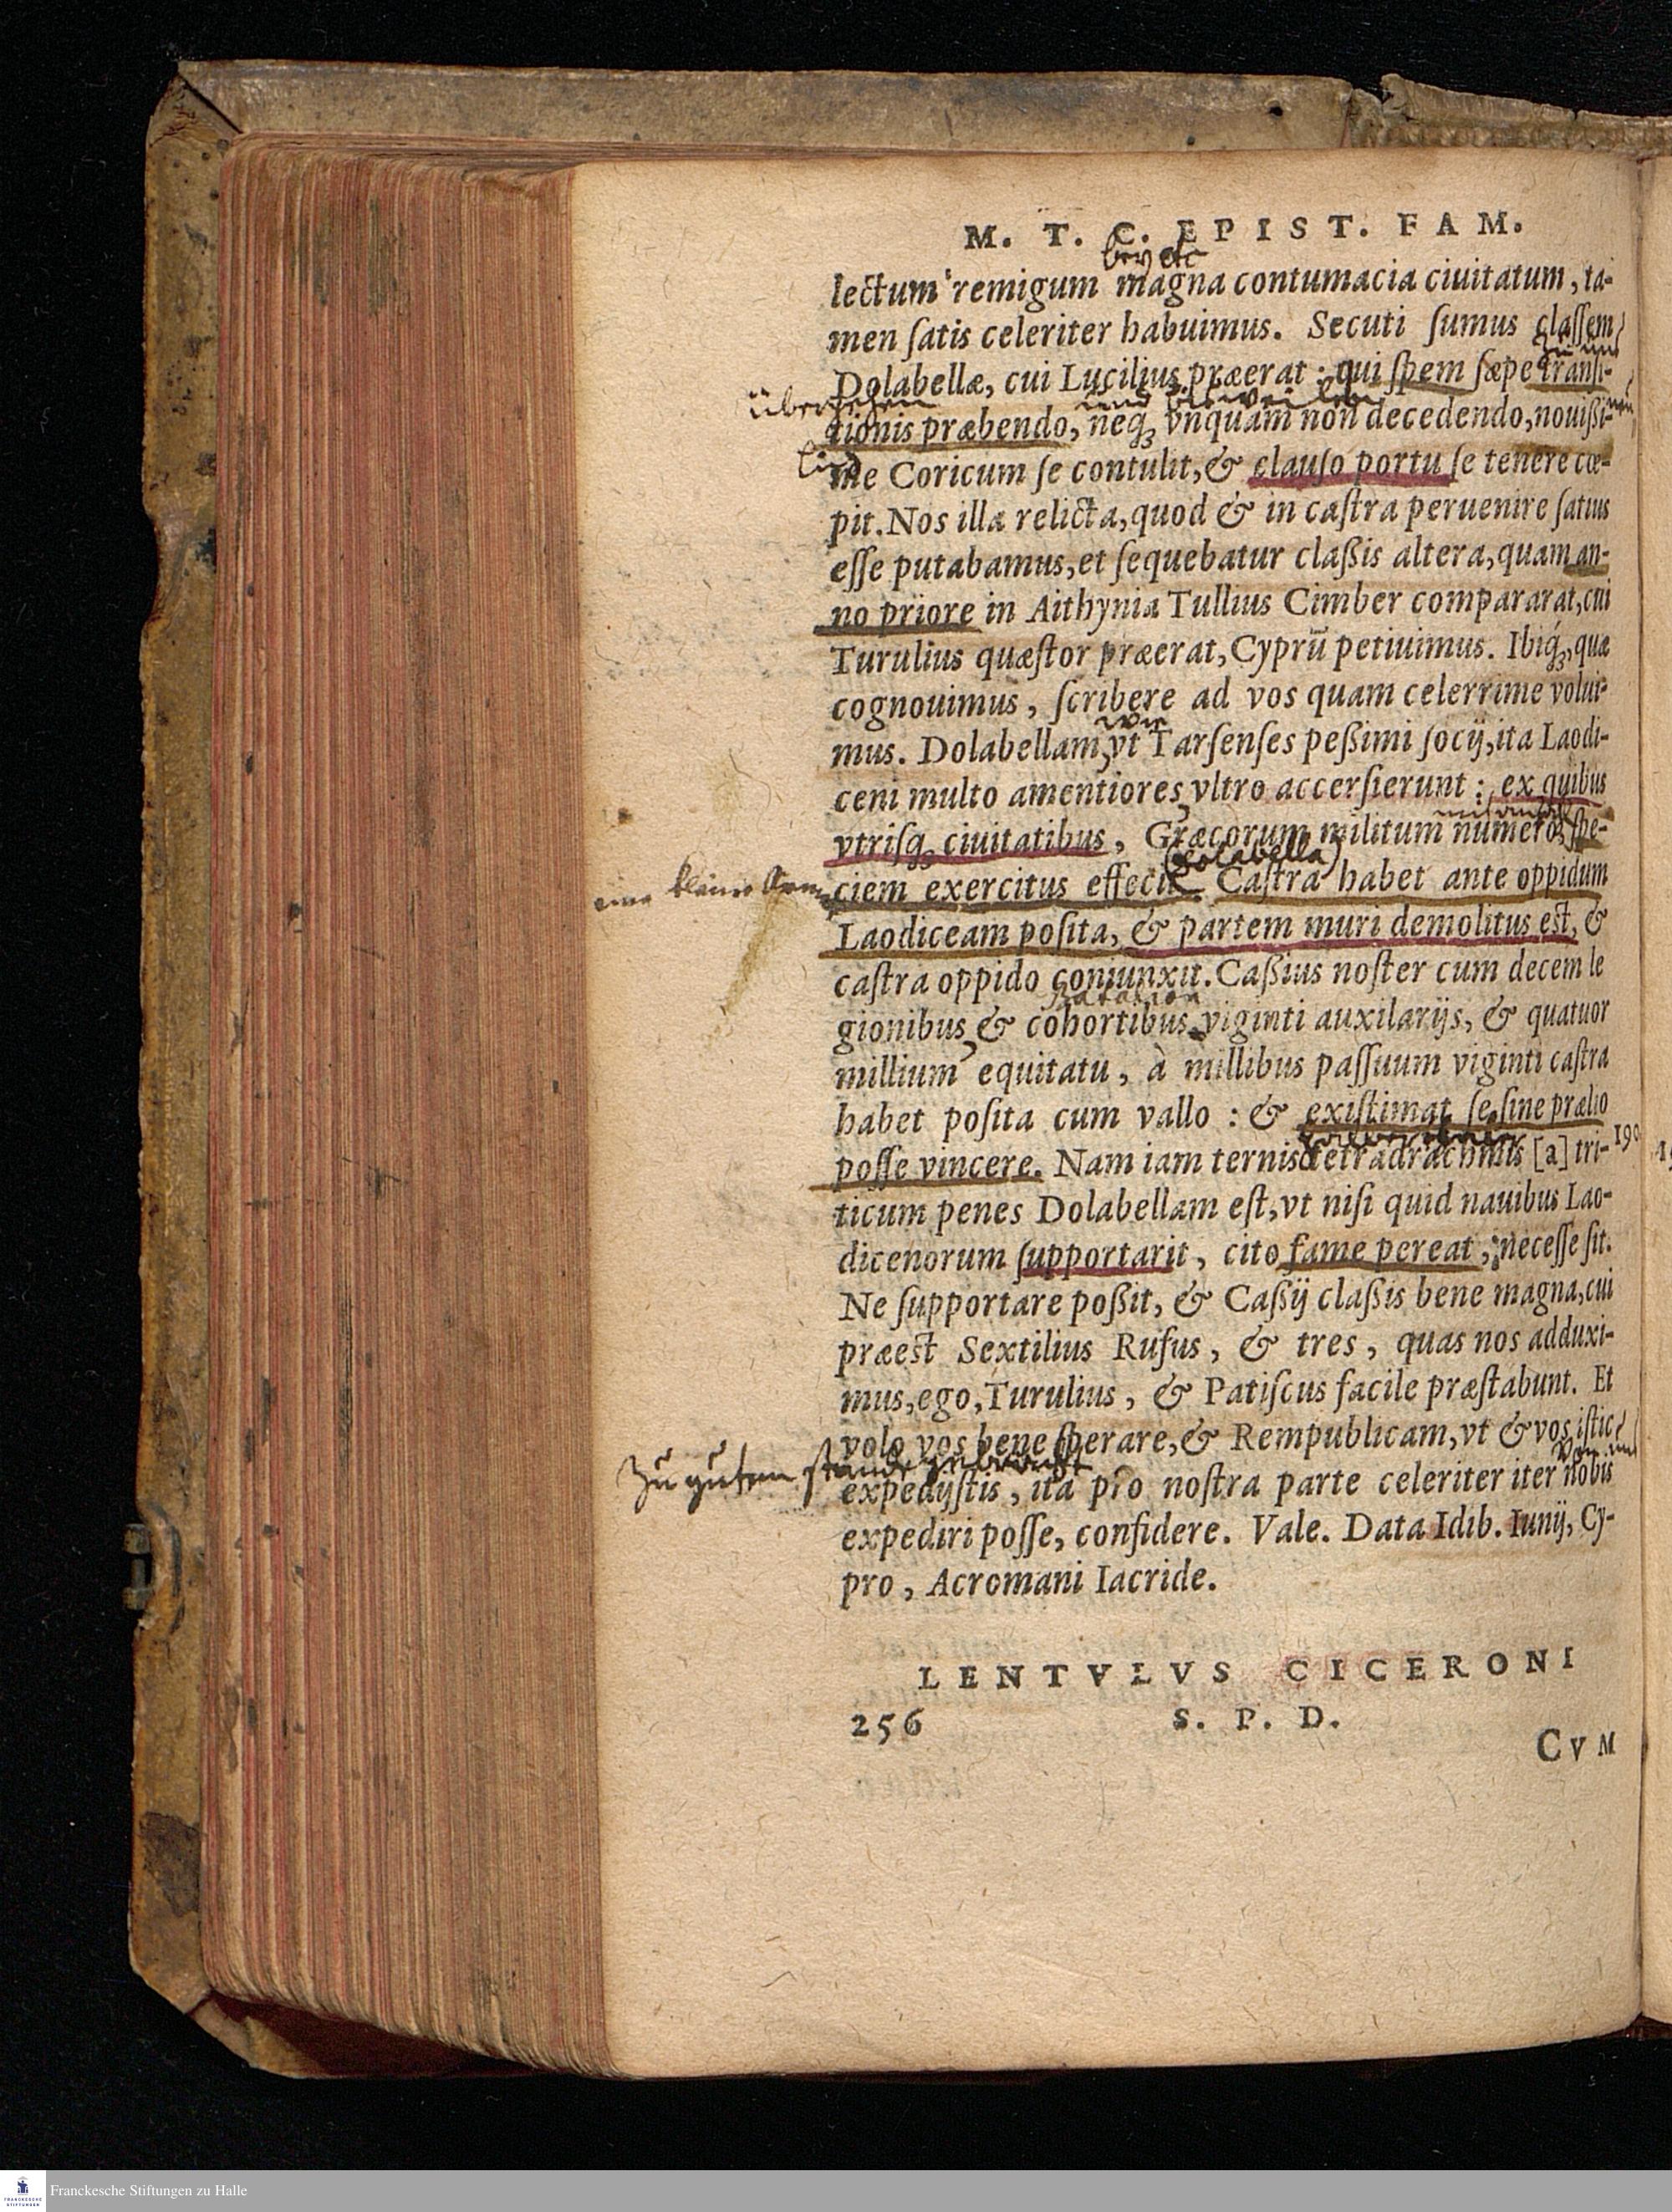 M. T. C. EPIST. FAM.
bey etc
lectum remigum magna contumacia ciuitatum, ta-
men ſatis celeriter habuimus. Secuti ſumus claſſem
Dolabellæ, cui Lucilius præerat: qui ſpem ſæpe tranſi-
übergehen
tionis præbendo, neq; vnquam non decedendo, nouißi-
me Coricum ſe contulit, & clauſo portu ſe tenere cœ-
pit. Nos illa relicta, quod & in caſtra peruenire ſatius
eſſe putabamus, et ſequebatur claßis altera, quam an-
no priore in Aithynia Tullius Cimber compararat, cui
Turulius quæſtor præerat, Cyprū petiuimus. Ibiq́;, quæ
cognouimus, ſcribere ad vos quam celerrime volui-
wie
mus. Dolabellam, vt Tarſenſes peßimi ſocij, ita Laodi-
ceni multo amentiores, vltro accerſierunt: ex quibus
vtriſq; ciuitatibus, Græcorum militum numero, ſpe-
(Dolabella)
eine kleine
ciem exercitus effecit. Caſtra habet ante oppidum
Laodiceam poſita, & partem muri demolitus est, &
caſtra oppido coniunxit. Caßius noſter cum decem le
gionibus, & cohortibus viginti auxilarijs, & quatuor
millium equitatu, à millibus paſſuum viginti caſtra
habet poſita cum vallo: & existimat ſe ſine prælio
poſſe vincere. Nam iam ternis tetradrachmis [a] tri-
190
ticum penes Dolabellam est, vt niſi quid nauibus Lao-
dicenorum ſupportarit, cito fame pereat, neceſſe ſit.
Ne ſupportare poßit, & Caßij claßis bene magna, cui
præest Sextilius Rufus, & tres, quas nos adduxi-
mus, ego, Turulius, & Patiſcus facile præſtabunt. Et
volo vos bene ſperare, & Rempublicam, vt & vos iſtic
zu gutem stande gebracht
expedijſtis, ita pro noſtra parte celeriter iter nobis
expediri poſſe, confidere. Vale. Data Idib. Iunij, Cy-
pro, Acromani Iacride.
LENTVLVS CICERONI
256 S. P. D.
CVM
FRANCKESCHE STIFTUNGEN
Franckesche Stiftungen zu Halle